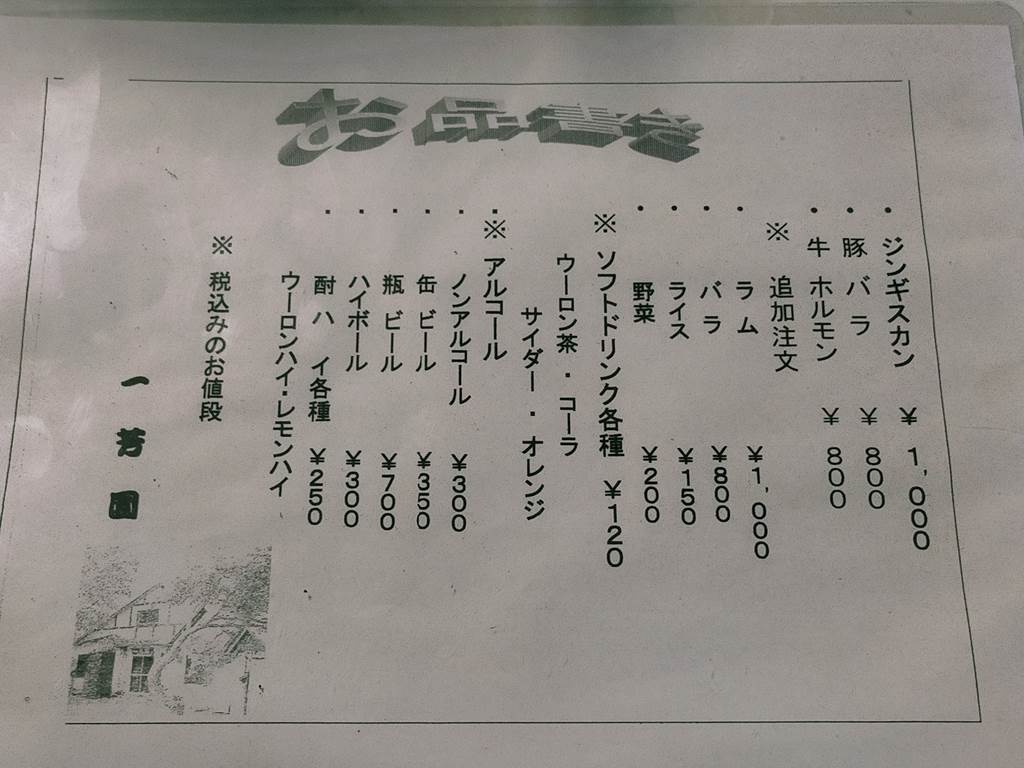 お品書き
・ジンギスカン ￥1,000
・豚 バラ ￥800
・牛 ホルモン ￥800
※ 追加注文
・ラム ￥1,000
・バラ ￥800
・ライス ￥150
・野菜 ￥200
※ ソフトドリンク各種 ￥120
ウーロン茶・コーラ
サイダー・オレンジ
※ アルコール
・ノンアルコール ￥300
・缶 ビール ￥350
・瓶 ビール ￥700
・ハイボール ￥300
・酎ハ イ各種 ￥250
ウーロンハイ・レモンハイ
※ 税込みのお値段
一芳園